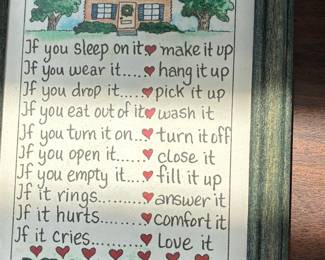 If you sleep on it make it up
If you wear it..... hang it up
If you drop it..... pick it up
If you eat out of it wash it
If you turn it on... turn it off
If you open it...... close it
If you empty it.... fill it up
If it rings.......... answer it
If it hurts.......... comfort it
If it cries.......... Love it